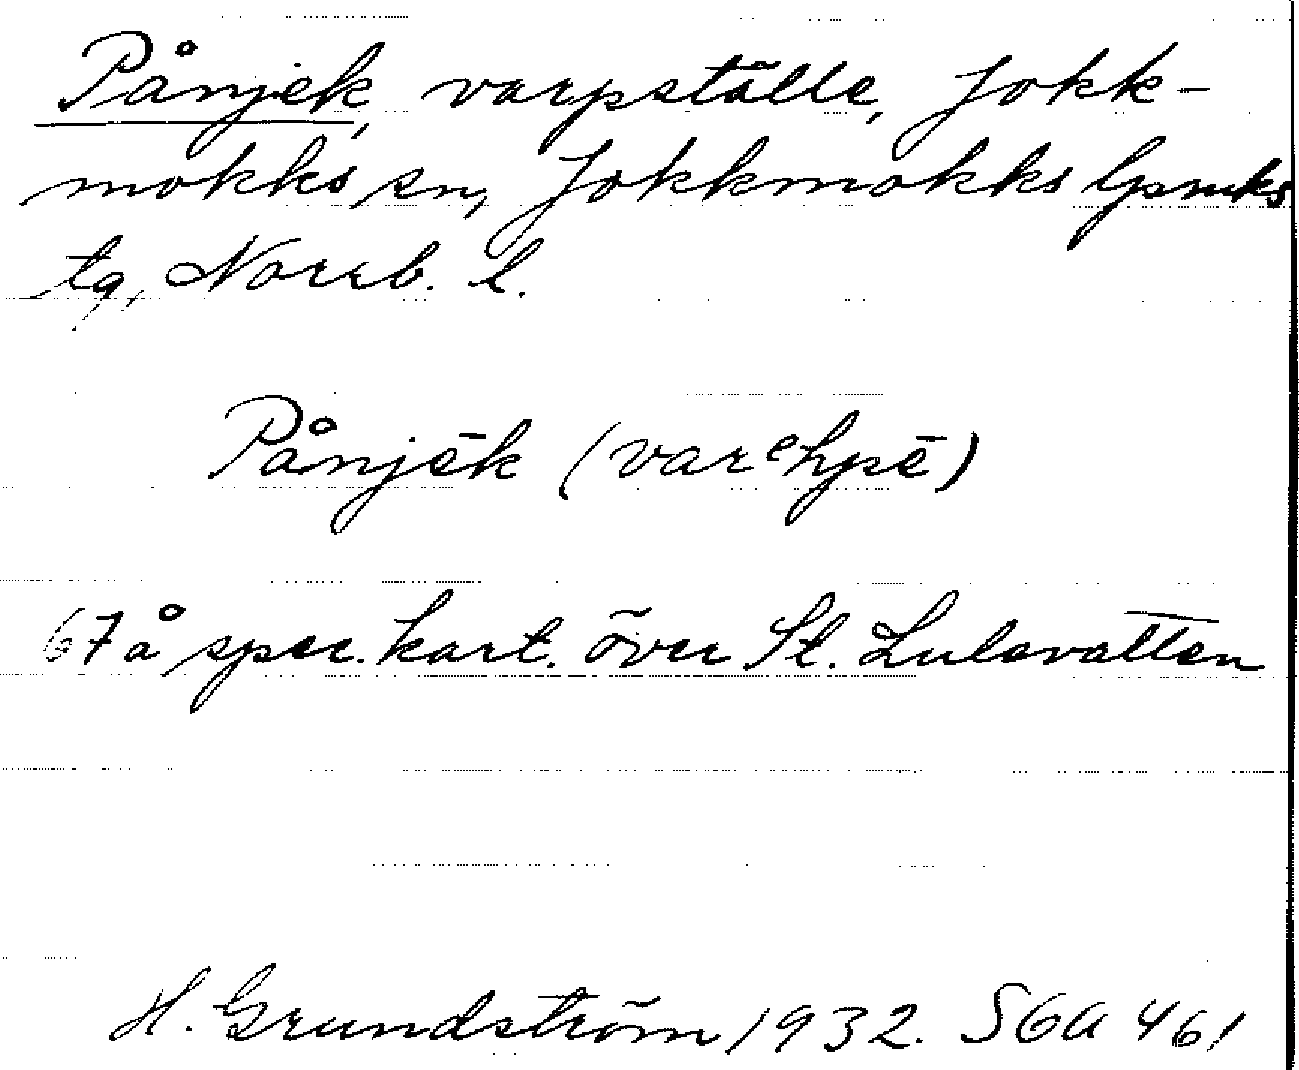 Pånjek, varpställe, Jokk-
mokks sn, Jokkmokks lpmks
tg, Norrb. l.
Pånjēk (varᵉhpē)
67 å spec. kart. över St. Lulevatten
H. Grundström 1932. SGA 461